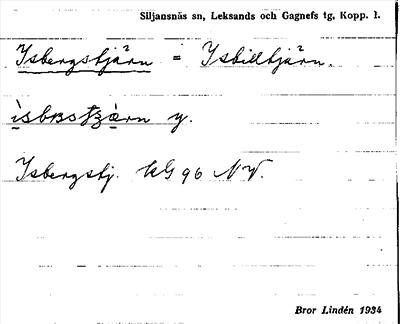 Siljansnäs sn, Leksands och Gagnefs tg, Kopp. l.
Ysbergstjärn = Ysbilltjärn.
y.
Ysbergstj. KG 96 NV.
Bror Lindén 1934